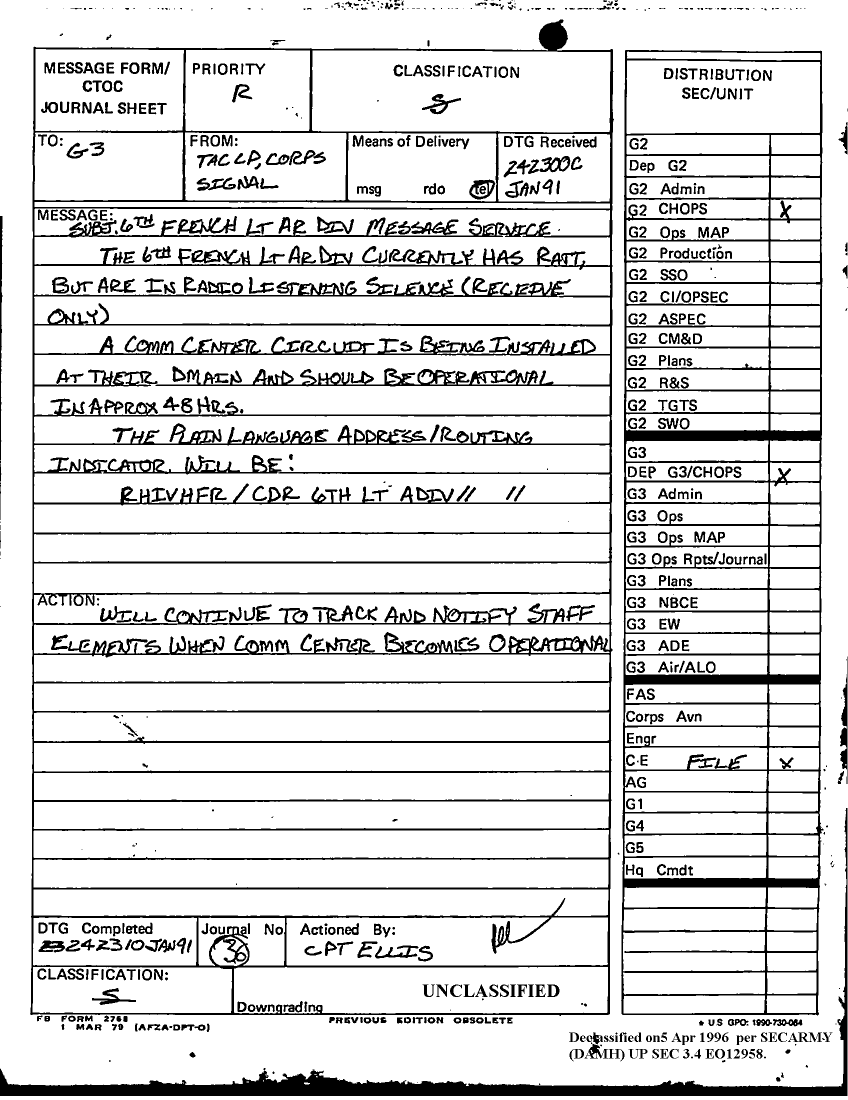 MESSAGE FORM/
CTOC
JOURNAL SHEET
PRIORITY
R
CLASSIFICATION
S
DISTRIBUTION
SEC/UNIT
TO: G3
FROM:
TAC LP, CORPS
SIGNAL
Means of Delivery
msg rdo tel
DTG Received
242300C
JAN91
MESSAGE:
SUBJ. 6TH FRENCH LT AR DIV MESSAGE SERVICE.
THE 6TH FRENCH LT AR DIV CURRENTLY HAS RATT,
BUT ARE IN RADIO LISTENING SILENCE (RECEIVE
ONLY)
A COMM CENTER CIRCUIT IS BEING INSTALLED
AT THEIR DMAIN AND SHOULD BE OPERATIONAL
IN APPROX 48 HRS.
THE PLAIN LANGUAGE ADDRESS/ROUTING
INDICATOR. WILL BE:
RHIVHFR/CDR 6TH LT ADIV// //
ACTION:
WILL CONTINUE TO TRACK AND NOTIFY STAFF
ELEMENTS WHEN COMM CENTER BECOMES OPERATIONAL
DTG Completed
242310JAN91
Journal No
36
Actioned By:
CPT ELLIS
CLASSIFICATION:
S
Downgrading
UNCLASSIFIED
FB FORM 2768
1 MAR 79 (AFZA-DPT-O)
PREVIOUS EDITION OBSOLETE
G2
Dep G2
G2 Admin
G2 CHOPS X
G2 Ops MAP
G2 Production
G2 SSO
G2 CI/OPSEC
G2 ASPEC
G2 CM&D
G2 Plans
G2 R&S
G2 TGTS
G2 SWO
G3
DEP G3/CHOPS X
G3 Admin
G3 Ops
G3 Ops MAP
G3 Ops Rpts/Journal
G3 Plans
G3 NBCE
G3 EW
G3 ADE
G3 Air/ALO
FAS
Corps Avn
Engr
C-E FILE X
AG
G1
G4
G5
Hq Cmdt
* U S GPO: 1990-730-064
Declassified on5 Apr 1996 per SECARMY
(DAMH) UP SEC 3.4 EO12958.